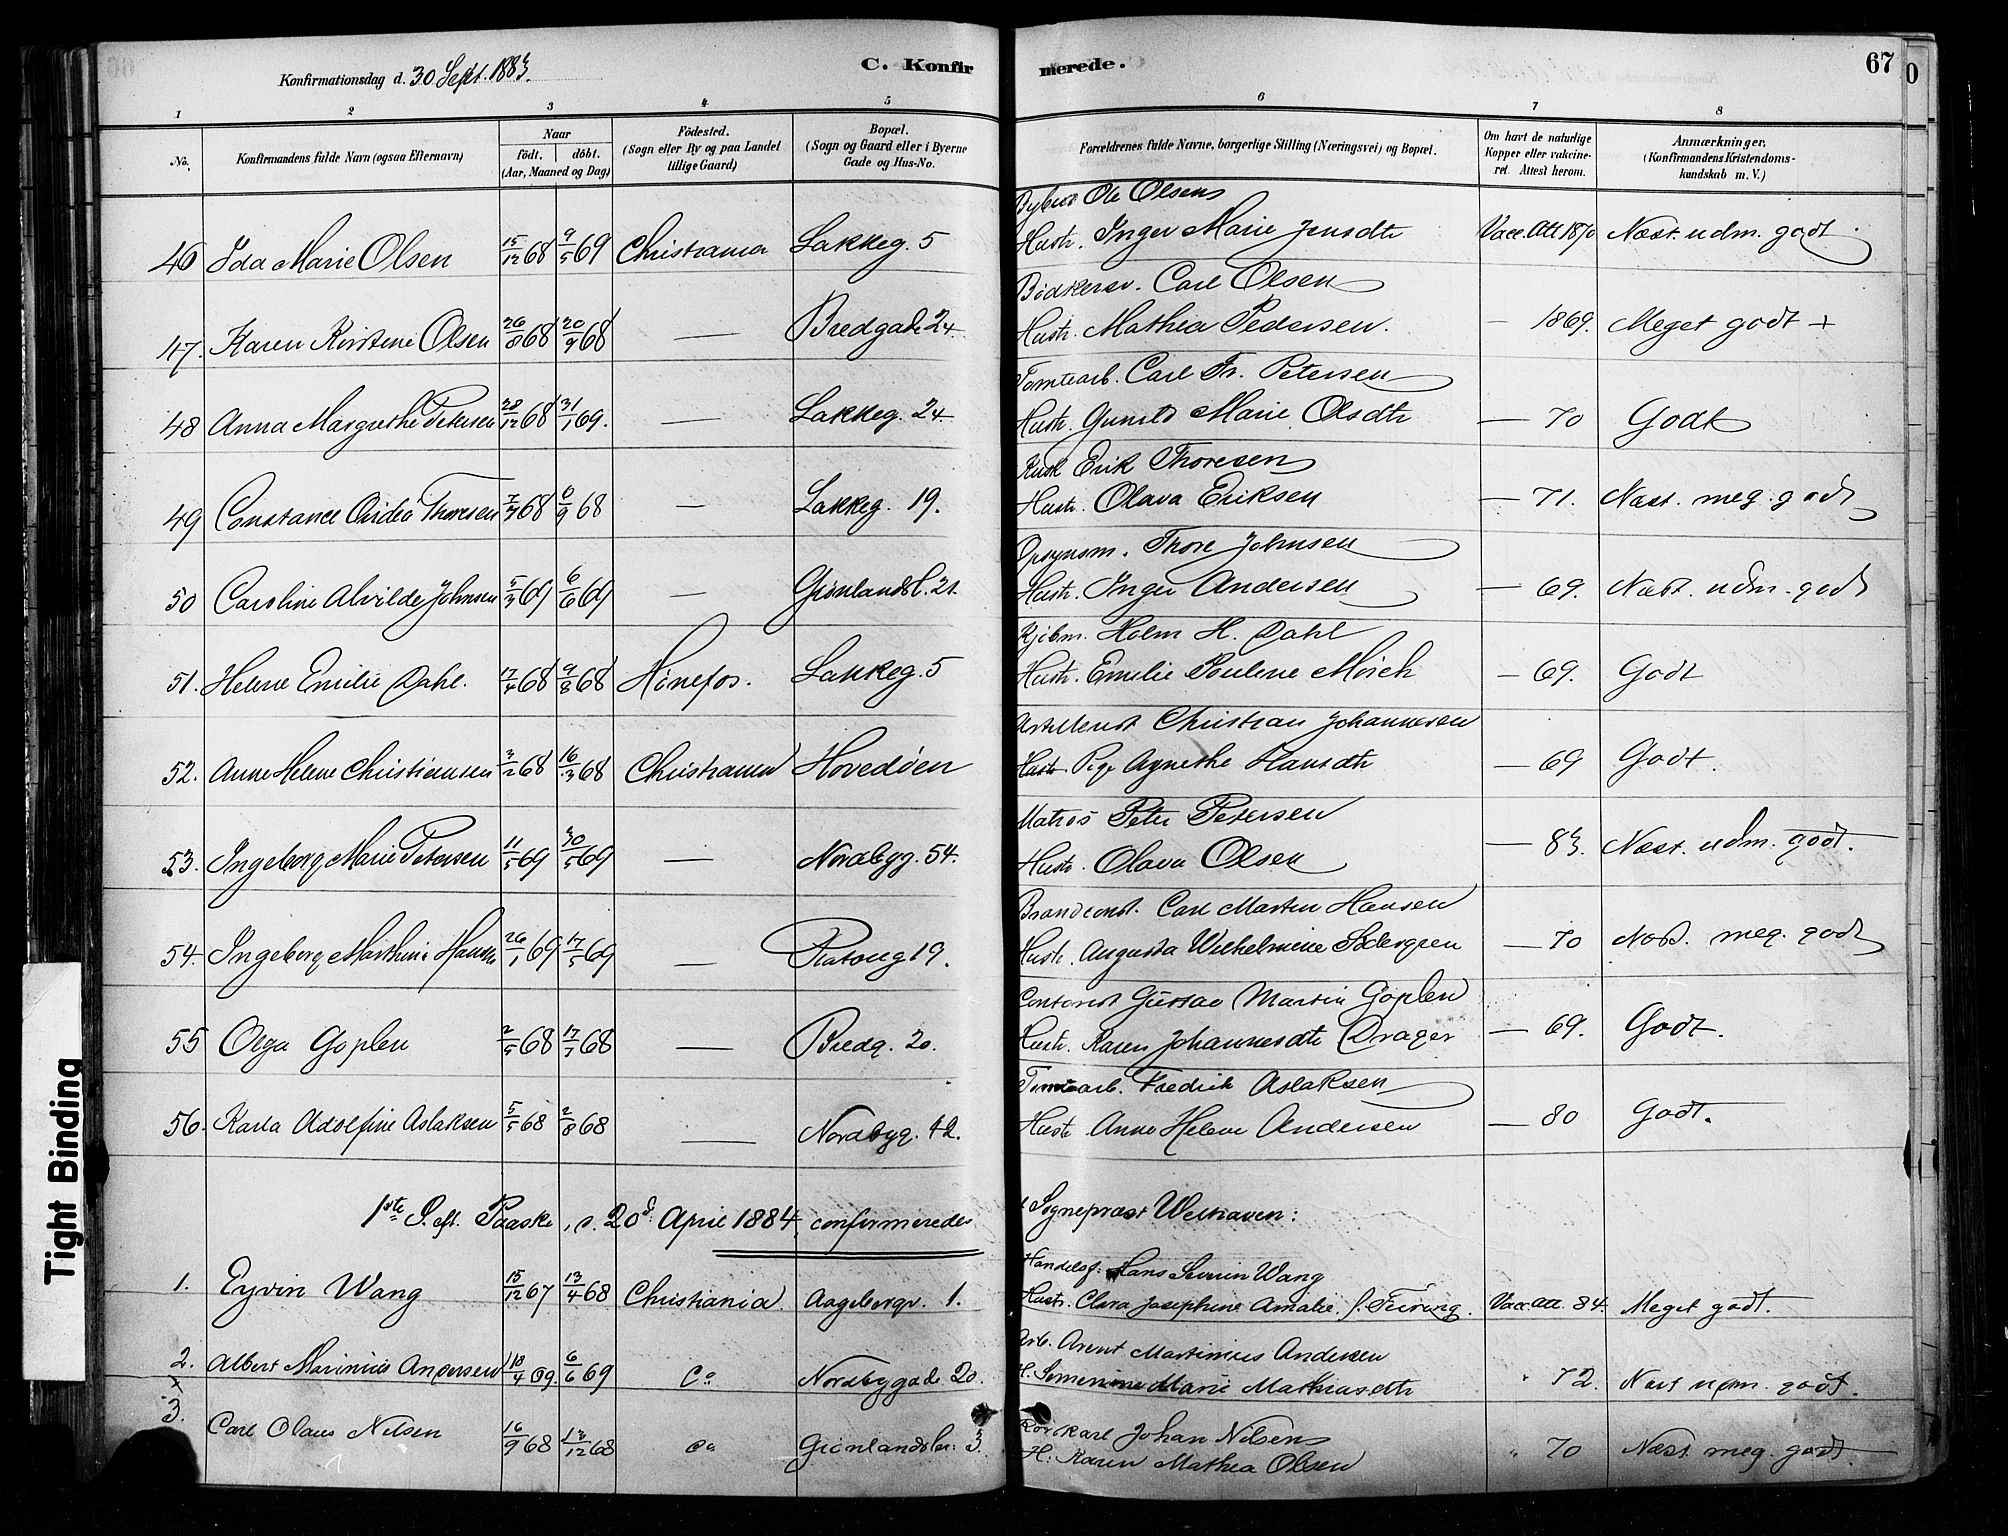 Konfirmationsdag d. 30 Sept. 1883.
C. Konfirmerede.
67
1 2 3 4 5 6 7 8
No.
Konfirmandens fulde Navn (ogsaa Efternavn)
Naar
födt. döbt.
(Aar, Maaned og Dag)
Födested.
(Sogn eller By og paa Landet
tillige Gaard)
Bopæl.
(Sogn og Gaard eller i Byerne
Gade og Hus-No.
Forældrenes fulde Navne, borgerlige Stilling (Næringsvei) og Bopæl.
Om havt de naturlige
Kopper eller vakcine-
ret. Attest herom.
Anmærkninger.
(Konfirmandens Kristendoms-
kundskab m. V.)
Ole Olsens
46 Ida Marie Olsen 15/12 68 9/5 69 Christiania Lakkeg. 5 Hustr. Inger Marie Jensdtr Vacc. Att 1870 Næst. udm. godt.
Bödkersv. Carl Olsen
47. Karen Kirstine Olsen 26/8 68 20/9 68 — Bredgade 24 Hustr. Mathea Pedersen. — 1869. Meget godt +
Tomtearb. Carl Fr. Petersen
48 Anna Margrethe Petersen 28/12 68 31/1 69. — Lakkeg. 24 Hustr. Gunild Marie Olsdtr — 70 Godt
Kusk Erik Thoresen
49 Constance Thoresen 68 6/9 68 — Lakkeg. 19. Hustr. Olava Eriksen — 71. Næst. meg. godt
Opsynsm. Thore Johnsen
50 Caroline Alvilde Johnsen 5/3 69 6/6 69 — Grönlandsl. 21. Hustr. Inger Andersen — 69. Næst. udm. godt
Kjöbm. Holm H. Dahl
51. Helene Emilie Dahl. 17/4 68 9/8 68 Hönefos. Lakkeg. 5 Hustr. Emilie Pouline Mörch — 69. Godt
Artillerist Christian Johannesen
52. Anne Helene Christiansen 3/2 68 16/3 68 Christiania Hovedöen Hustr. Pige Agnethe Hansdtr — 69 Godt.
Matros Peter Petersen
53. Ingeborg Marie Petersen 11/5 69 30/5 69 — Nordbyg. 54. Hustr. Olava Olsen — 83. Næst. udm. godt.
Brandconst. Carl Martin Hansen
54. Ingeborg Marthine Hansen 26/1 69 17/5 69 — Platoug 19. Hustr. Augusta Wilhelmine Södergren — 70 Næst. meg. godt
Contorist Gustav Martin Goplen
55 Olga Goplen 2/5 68 17/7 68 — Bredg. 20. Hustr. Karen Johannesdtr Drager — 69. Godt.
Tomtearb. Fredrik Aslaksen
56. Karla Adolfine Aslaksen 5/5 68 2/8 68 — Nordbyg. 42. Hustr Anne Helene Andersen — 80 Godt.
1ste S. eft. Paaske, d. 20d April 1884, confirmeredes
Sogneprest Welhaven:
Handelsf. Hans Severin Wang
1. Eyvin Wang 15/12 67 13/4 68 Christiania Aagebergv. 1. Hustr. Clara Josephine Amalie f. Feiring. Vacc. Att. 84. Meget godt.
Arb. Arent Martinius Andersen
2. Albert Marinius Andersen 18/4 69. 6/6 69 Do Nordbygade 20. H. Marie Mathiasdtr " 72. Næst udm. godt.
3. Carl Olaus Nilsen 16/9 68 13/12 68 Do Grönlandsler. 3. Johan Nilsen
H. Karen Mathea Olsen " 70 Næst. meg. godt.
Tight Binding